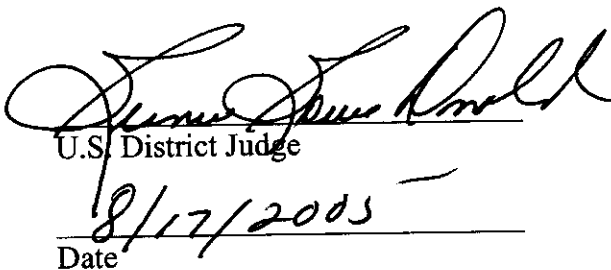 Donald
U.S. District Judge
8/17/2005
Date